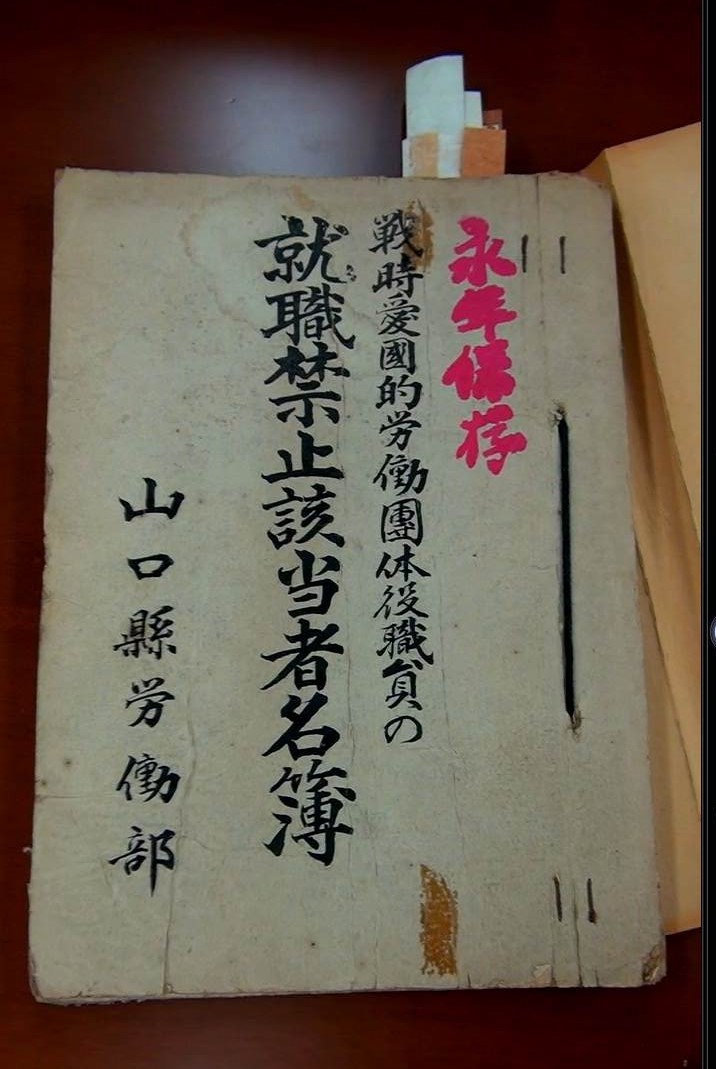 永年保存
戦時愛國的労働團体役職員の
就職禁止該当者名簿
山口縣労働部